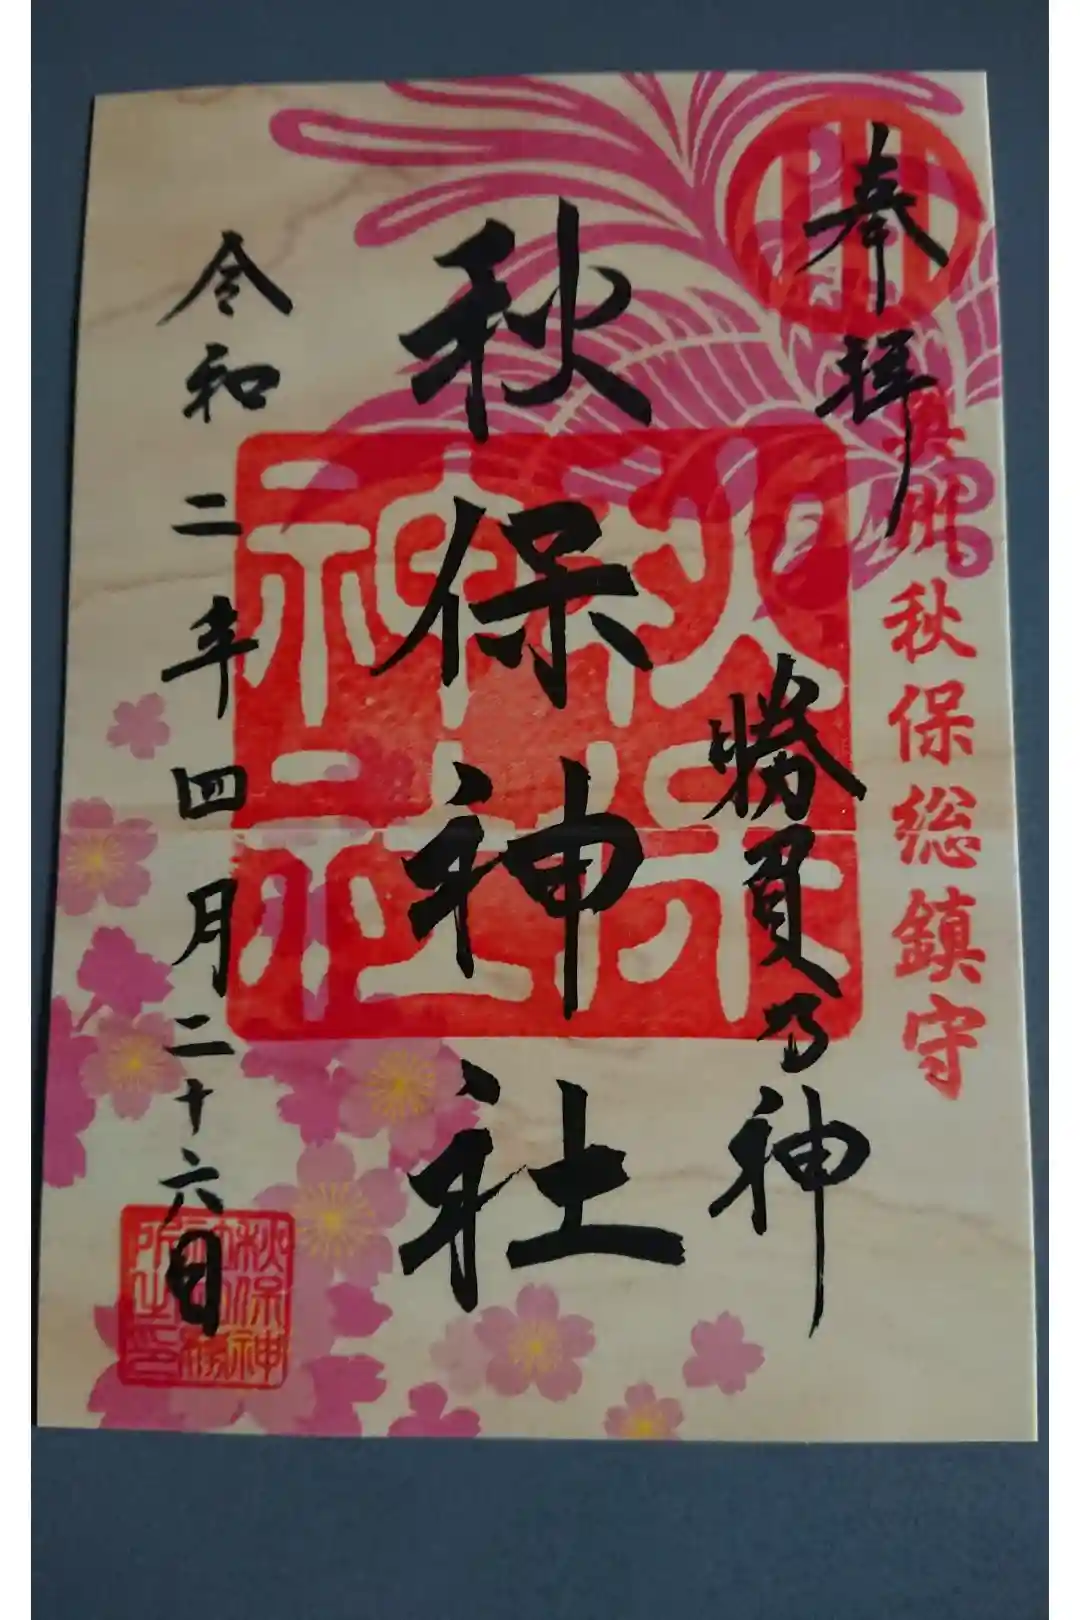 奉拝
奥州秋保総鎮守
勝負乃神
秋保神社
秋保神社
令和二年四月二十六日
秋保神社社務所之印